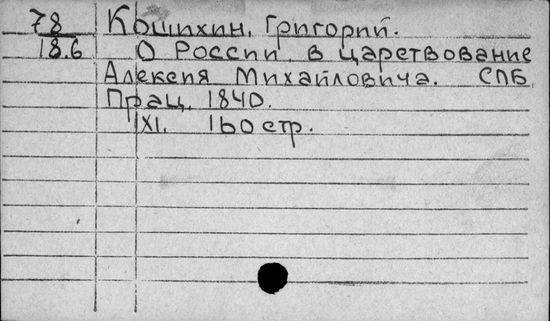 78 Кошихин, Григорий.
18.6 О России в царствование
Алексия Михайловича. СПБ
Прац. 1840.
XI. 160 стр.